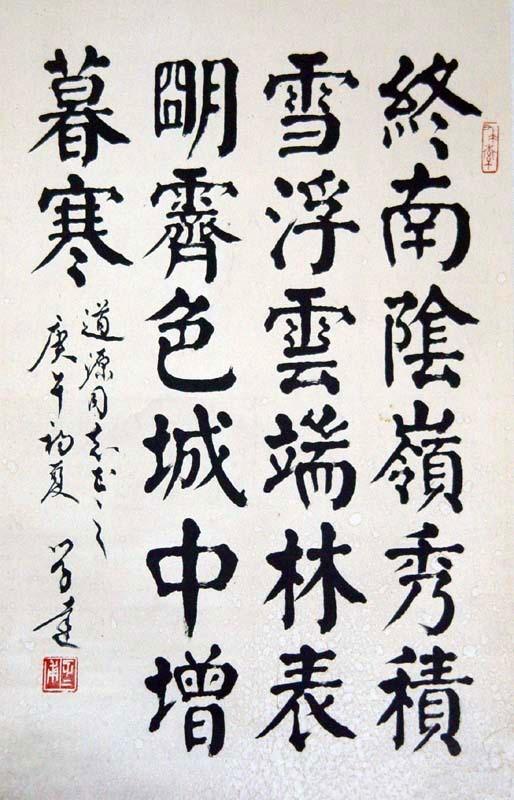 終南陰嶺秀積
雪浮雲端林表
朙霽色城中增
暮寒
道源同志正之
庚午初夏